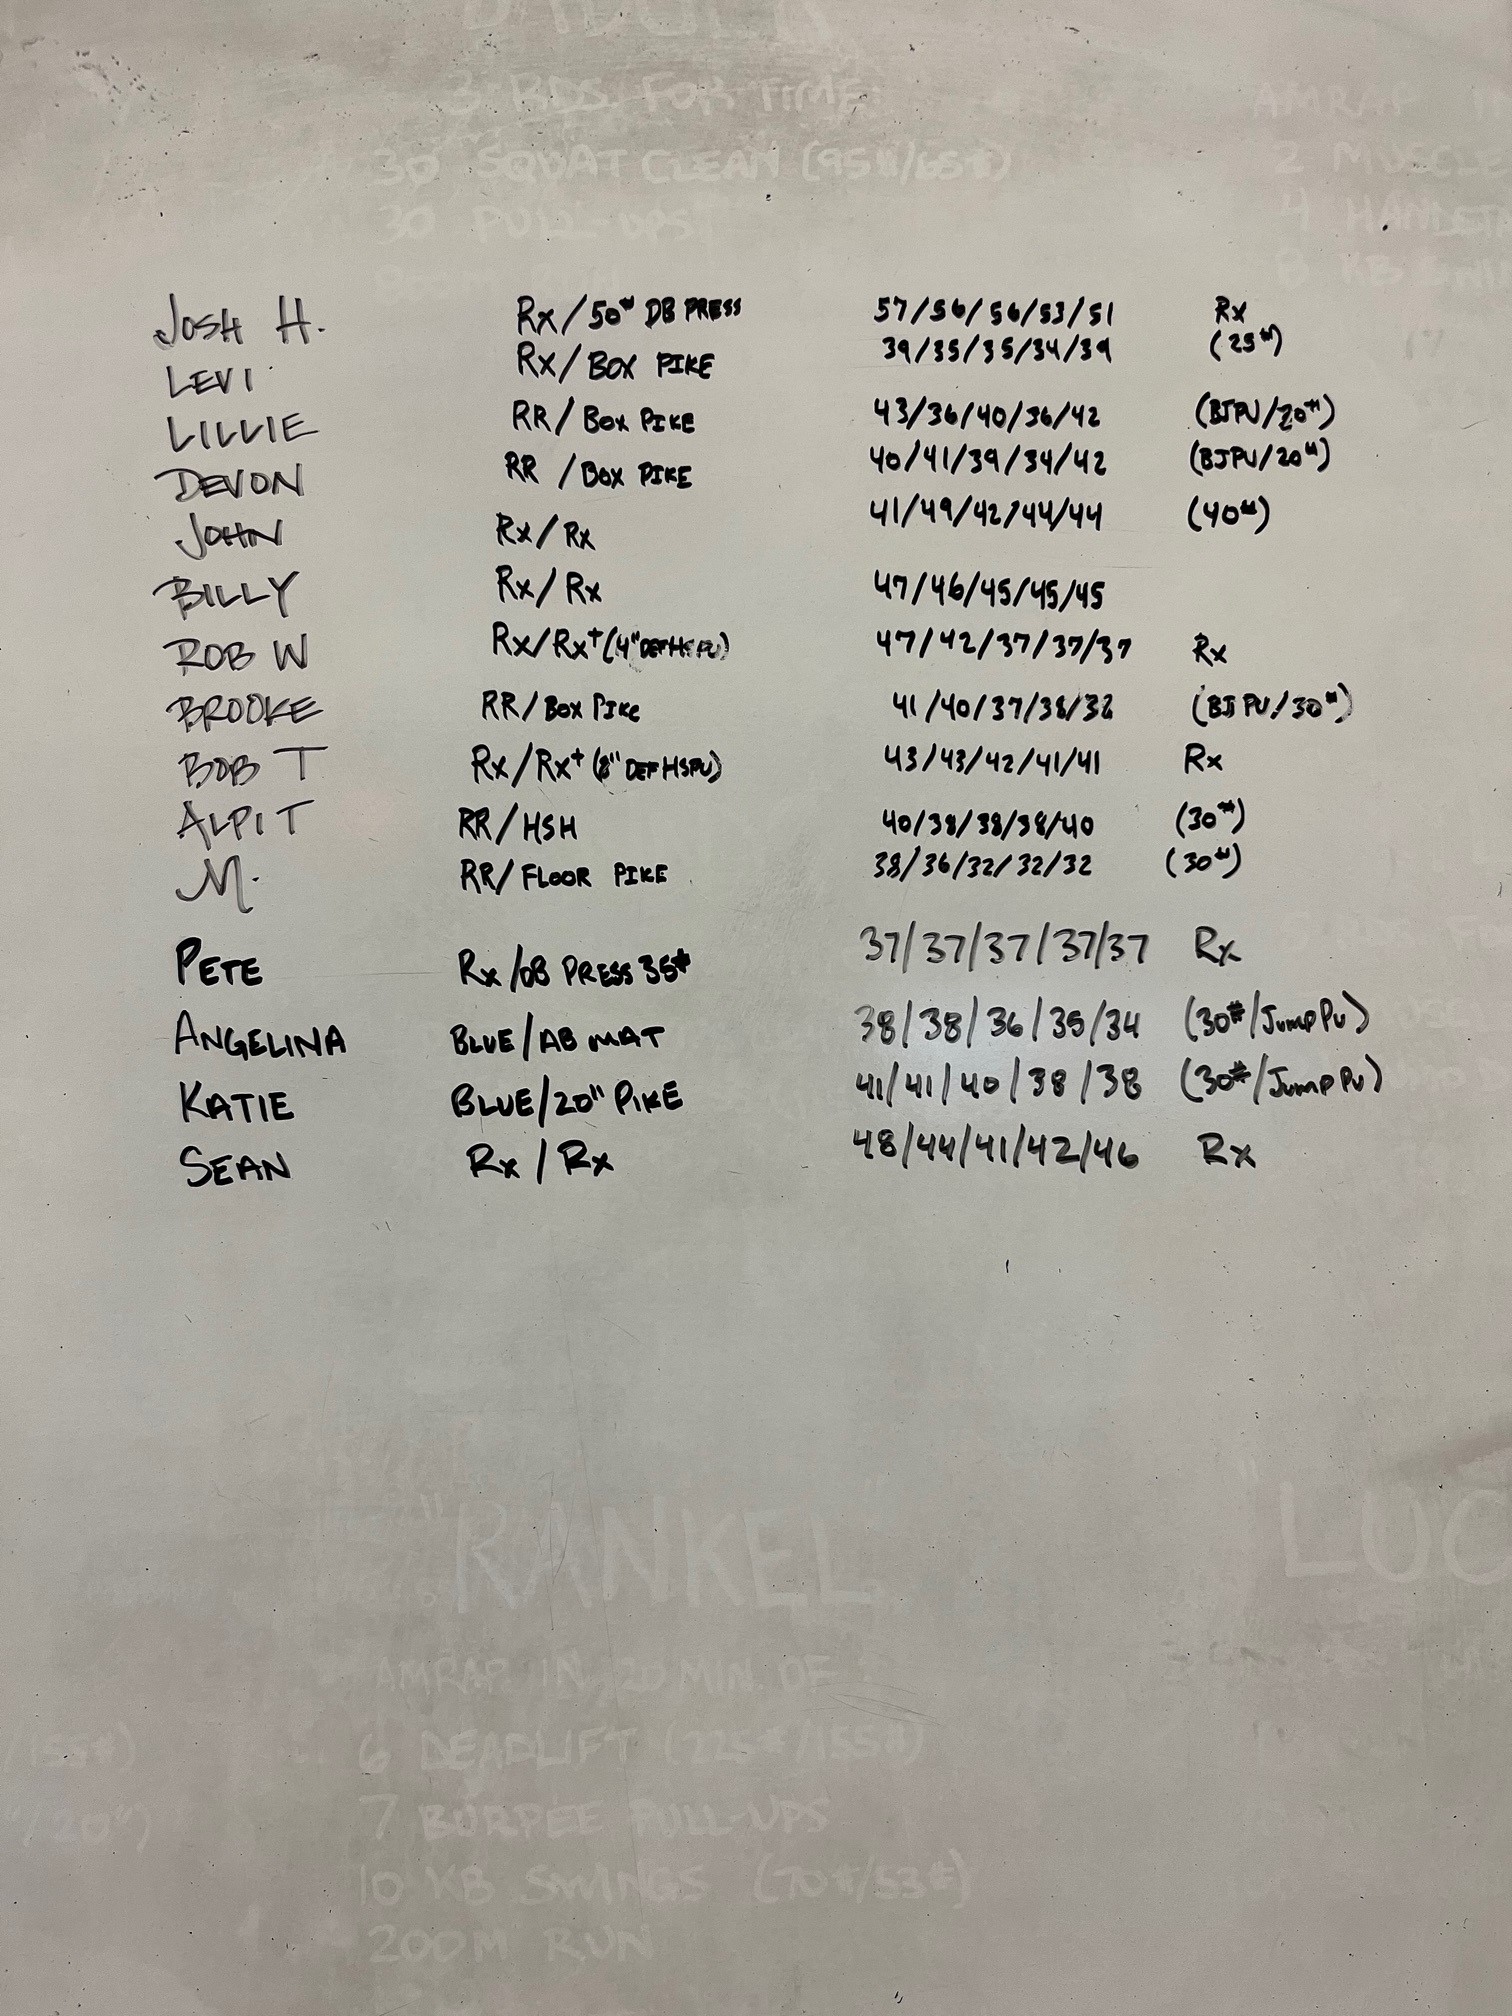 3 RDS. FOR TIME:
AMRAP
30 SQUAT CLEAN (95#/65#)
2 MUSCLE
30 PULL-UPS
4
8 KB
JOSH H. Rx/50# DB PRESS 57/56/56/53/51 Rx
LEVI Rx/BOX PIKE 39/35/35/34/39 (25#)
LILLIE RR/BOX PIKE 43/36/40/36/42 (BJPU/20#)
DEVON RR/BOX PIKE 40/41/39/34/42 (BJPU/20#)
JOHN Rx/Rx 41/49/42/44/44 (40#)
BILLY Rx/Rx 47/46/45/45/45
ROB W Rx/Rx+ (4" DEF HSPU) 47/42/37/37/37 Rx
BROOKE RR/BOX PIKE 41/40/37/38/32 (BJPU/30#)
BOB T Rx/Rx+ (8" DEF HSPU) 43/43/42/41/41 Rx
ALPIT RR/HSH 40/38/38/38/40 (30#)
M. RR/FLOOR PIKE 38/36/32/32/32 (30#)
PETE Rx/DB PRESS 35# 37/37/37/37/37 Rx
ANGELINA BLUE/AB MAT 38/38/36/35/34 (30#/JUMP PU)
KATIE BLUE/20" PIKE 41/41/40/38/38 (30#/JUMP PU)
SEAN Rx/Rx 48/44/41/42/46 Rx
"RANKEL"
"LUC
AMRAP IN 20 MIN. OF:
6 DEADLIFT (225#/155#)
/155#)
7 BURPEE PULL-UPS
/20")
10 KB SWINGS (70#/53#)
200M RUN